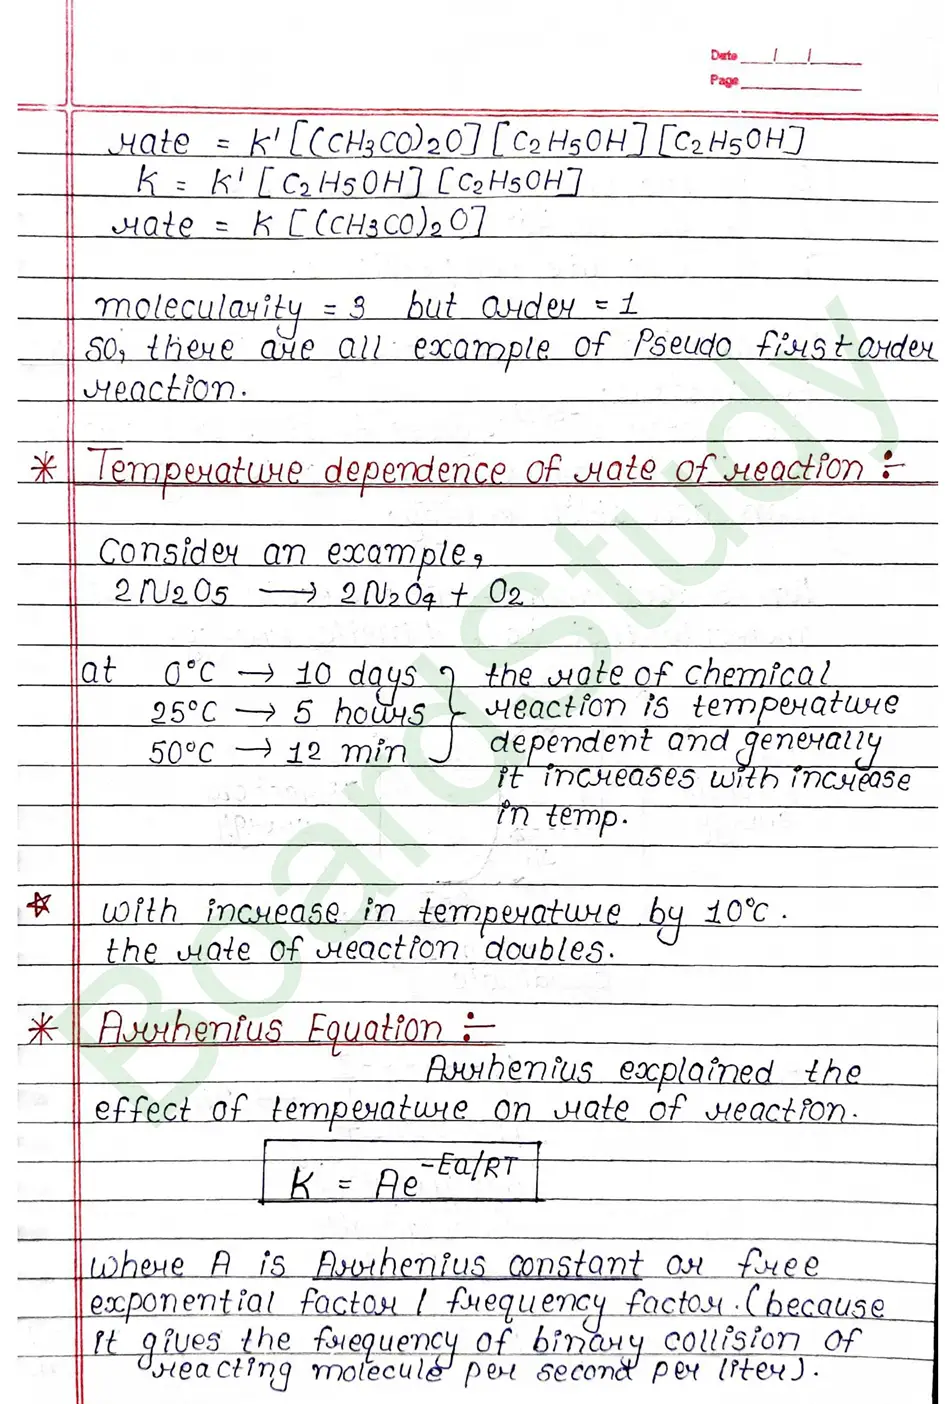 Date __/__/____
Page ________
rate = K' [(CH3CO)2O] [C2H5OH] [C2H5OH]
K = K' [C2H5OH] [C2H5OH]
rate = K [(CH3CO)2O]
molecularity = 3 but order = 1
so, there are all example of Pseudo first order
reaction.
* Temperature dependence of rate of reaction :-
Consider an example,
2N2O5 → 2N2O4 + O2
at 0°C → 10 days } the rate of chemical
25°C → 5 hours } reaction is temperature
50°C → 12 min } dependent and generally
it increases with increase
in temp.
☆ with increase in temperature by 10°C.
the rate of reaction doubles.
* Arrhenius Equation :-
Arrhenius explained the
effect of temperature on rate of reaction.
K = Ae^-Ea/RT
where A is Arrhenius constant or free
exponential factor / frequency factor. (because
it gives the frequency of binary collision of
reacting molecule per second per liter).
BoardStudy